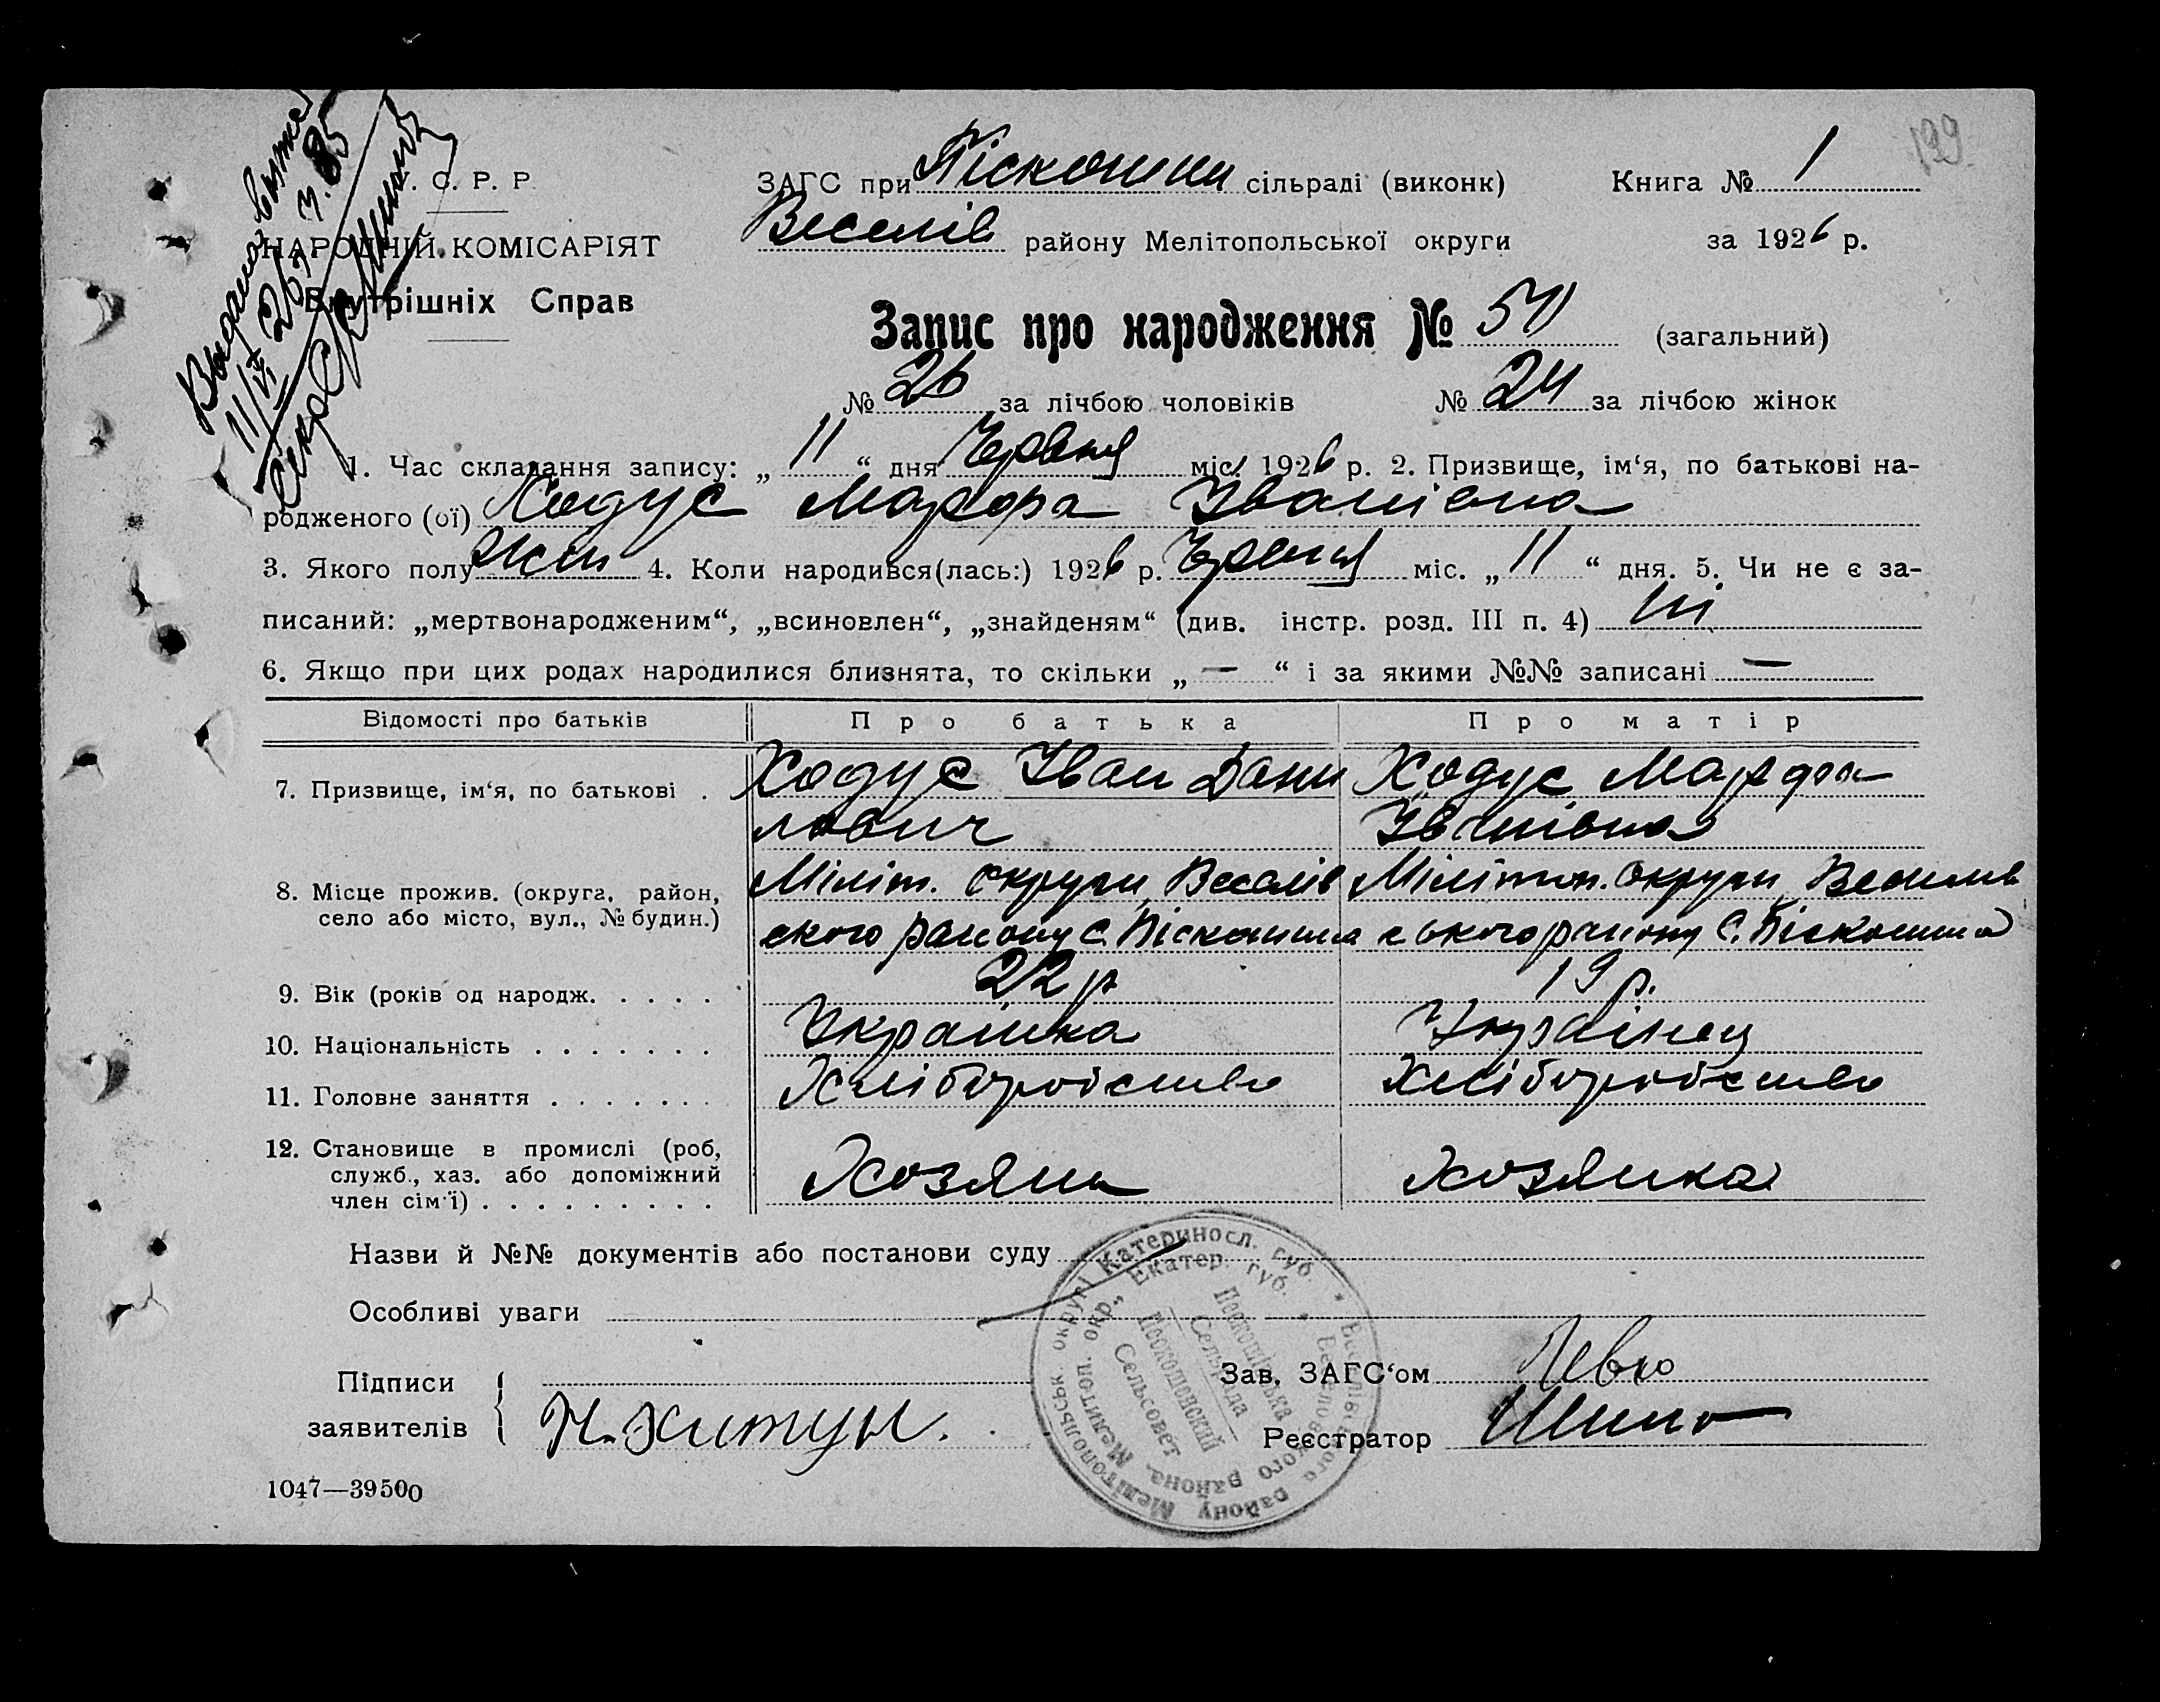 199
У. С. Р. Р.
ЗАГС при Піскошин сільраді (виконк)
Книга № 1
НАРОДНІЙ КОМІСАРІЯТ
Веселів району Мелітопольської округи
за 1926 р.
Внутрішніх Справ
Запис про народження № 51 (загальний)
№ 26 за лічбою чоловіків № 24 за лічбою жінок
1. Час складання запису: „ 11 “ дня Червня міс. 1926 р. 2. Призвище, ім‘я, по батькові на-
родженого (ої) Ходус Марфа Іванівна
3. Якого полу Жін 4. Коли народився(лась:) 1926 р. Червня міс. „ 11 “ дня. 5. Чи не є за-
писаний: „мертвонародженим“, „всиновлен“, „знайденям“ (див. інстр. розд. III п. 4) Ні
6. Якщо при цих родах народилися близнята, то скільки „ — “ і за якими №№ записані —
Відомості про батьків Про батька Про матір
7. Призвище, ім‘я, по батькові . Ходус Іван Дани Ходус Марфа
лович Іванівна
8. Місце прожив. (округа, район, Міліт. округи Веселів Мілітоп. округи Веселив
село або місто, вул., № будин.) ского району с. Піскошина ського району С. Піскошина
9. Вік (років од народж. . . . . 22 р 19 р.
10. Національність . . . . . . . Украінка Украінец
11. Головне заняття . . . . . . . Хліборобство Хліборобство
12. Становище в промислі (роб,
служб., хаз. або допоміжний Хозяин Хозяика
член сім‘ї) . . . . . . . . .
Назви й №№ документів або постанови суду
Особливі уваги
Підписи
заявителів
Зав. ЗАГС‘ом
Реєстратор
1047—39500
Мелітопольськ. округи Катеринос. губ. * Веселівського району
Мелитоп. окр., Екатер. губ. * Веселовского района
Піскошинська
Сельрада
Пескошенский
Сельсовет